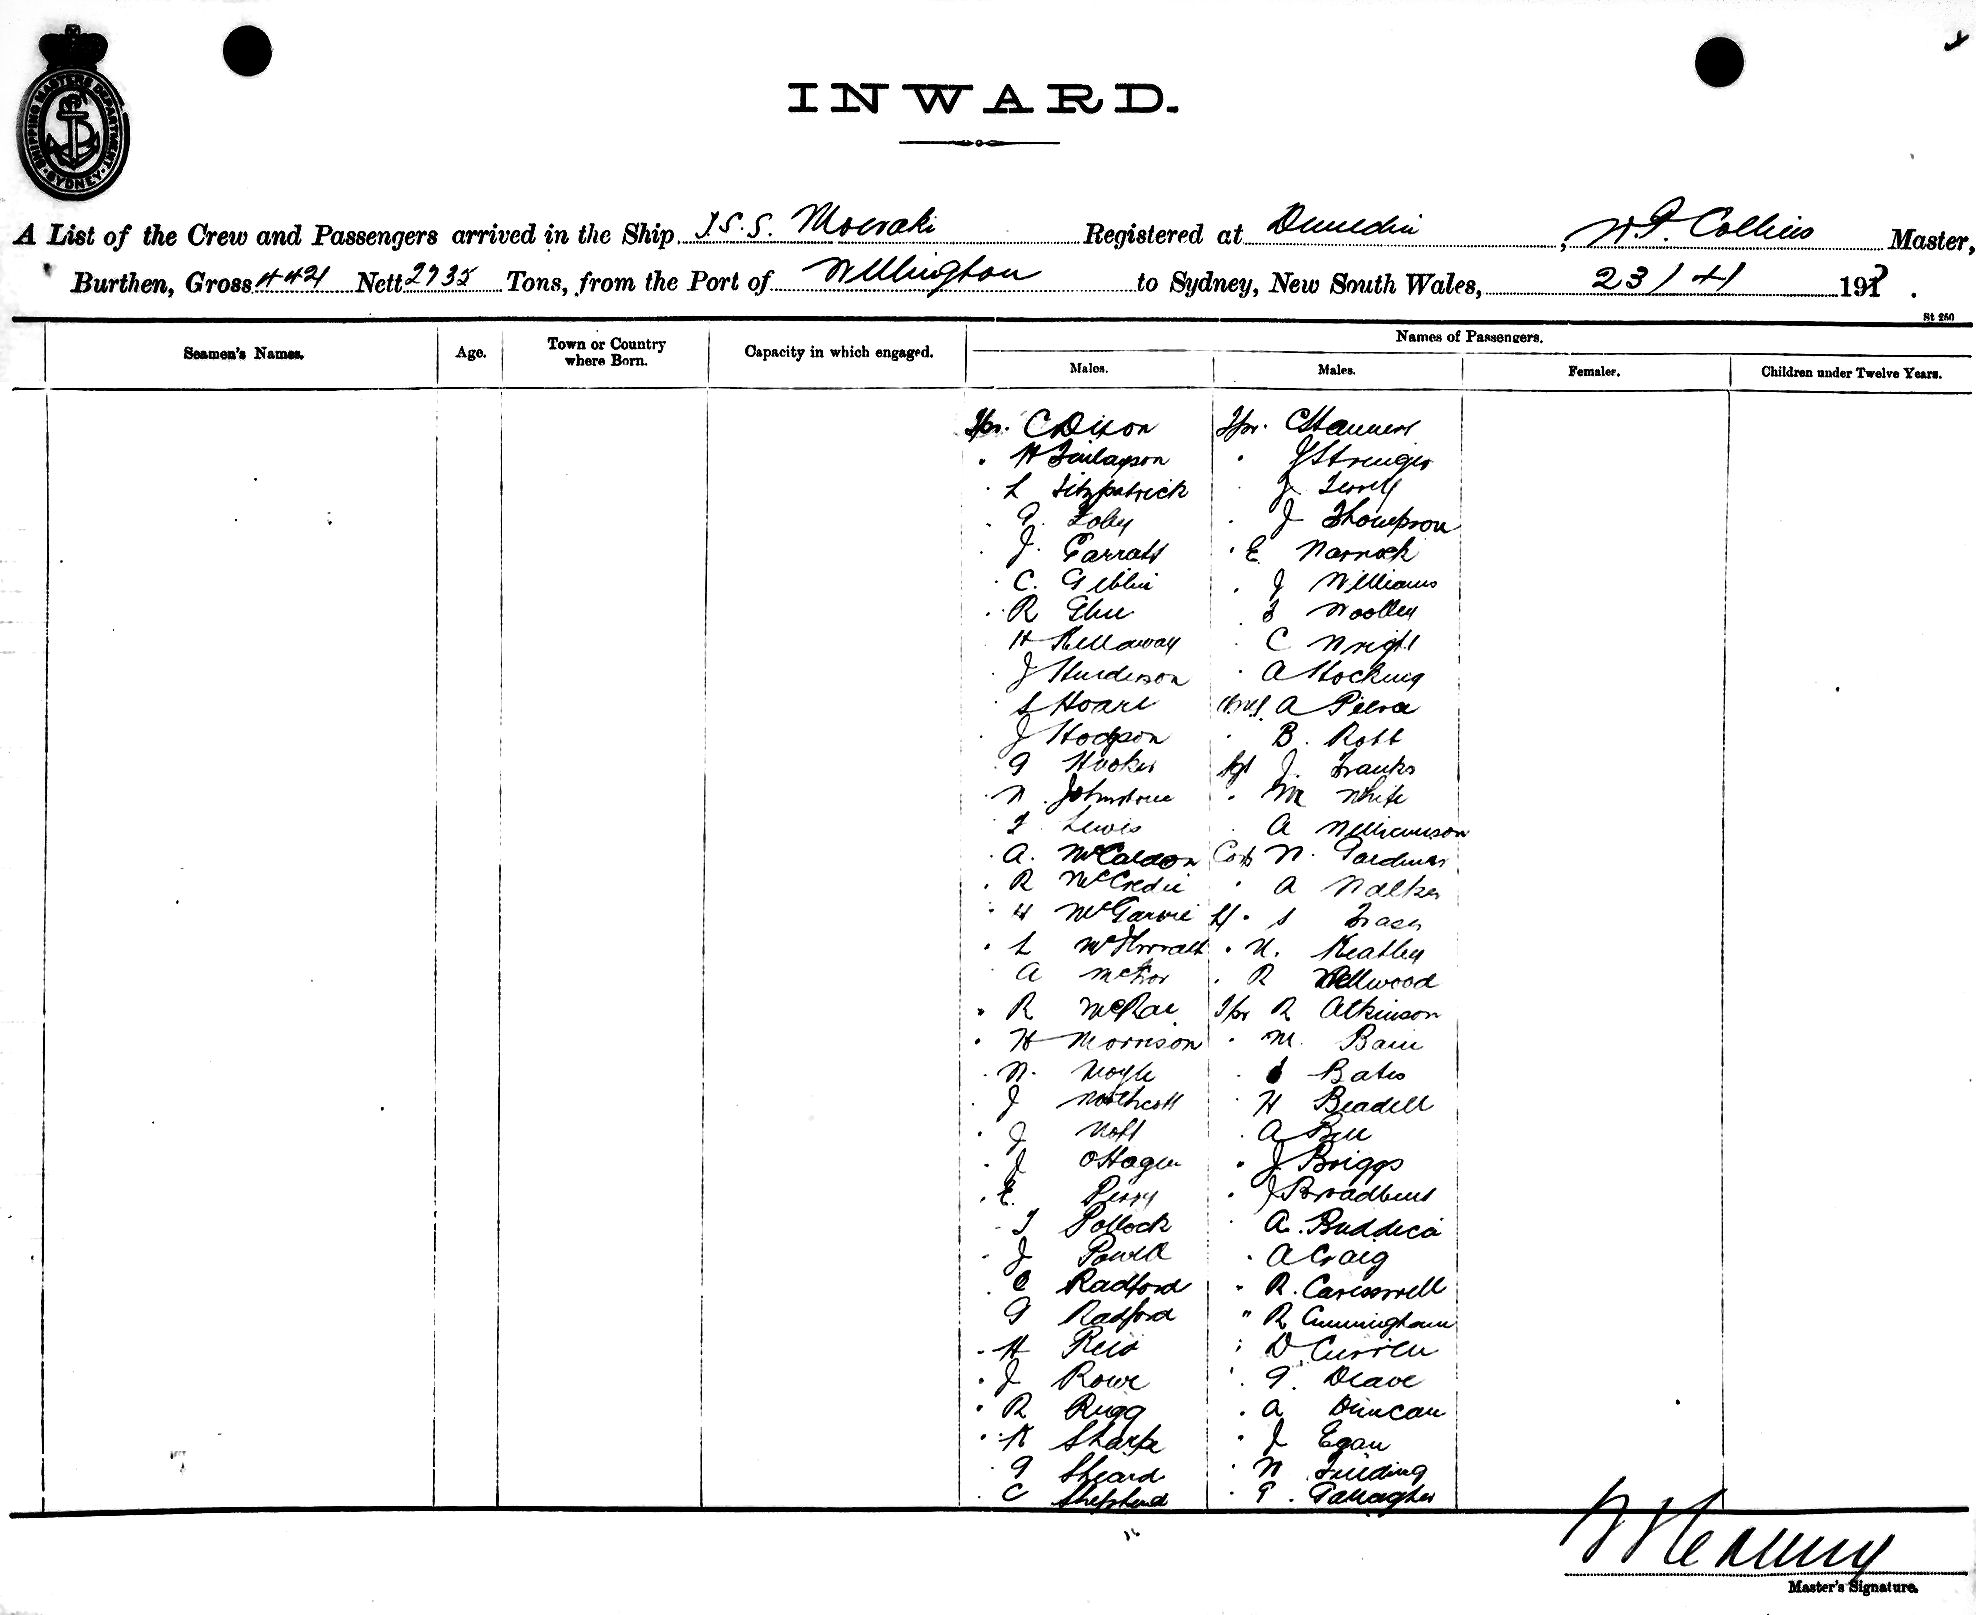 SHIPPING MASTERS DEPARTMENT
SYDNEY
INWARD.
A List of the Crew and Passengers arrived in the Ship T.S.S. Moeraki Registered at Dunedin, W. P. Collins Master,
Burthen, Gross 4421 Nett 2735 Tons, from the Port of Wellington to Sydney, New South Wales, 23/4/ 191
St 250
Seamen's Names. Age. Town or Country where Born. Capacity in which engaged. Names of Passengers.
Males. Males. Females. Children under Twelve Years.
Tpr. C Dixon Tpr. C Stanners
" H Finlayson " J Stringer
" L Fitzpatrick " J Terrell
" G. Foley " J Thompson
" J. Garratt " E Warnock
" C. Giblin " J Williams
" R " F Woolley
" H Hellaway " C Wright
" J Henderson " A Hocking
" S Hoare A Pierce
" J Hodgson " B. Robb
" G Hooker Sgt J. Franks
" W. Johnstone " M White
" F Lewis " A Williamson
" A. McCaldon Cop W. Gardiner
" R McCredie " A Walker
" H McGarvie S Fraser
" L " N. Keatley
" A " R Wellwood
" R McRae Tpr R Atkinson
" H Morrison " M. Bain
" W. Moyle " Bates
" J Northcott " H Beadell
" J Nott " A Bell
" J OHagen " J Briggs
" E. Perry " J Broadbent
" T Pollock " A. Buddica
" J Powell " A Craig
" C Radford " R. Caresswell
" G Radford " R Cunningham
" H Reid " D Curren
" J Rowe " G. Deave
" R Rigg " A Duncan
" K Sharpe " J Egan
" G Sheard " W Fielding
" C Shepherd " P. Gallagher
Master's Signature.